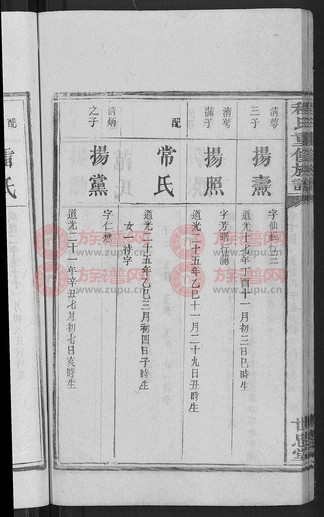 程氏重修族譜
世忠堂
清萼
三子
揚燾
字仙 行三
道光十七年丁酉十一月初三日巳時生
清萼
揚照
字芳
道光二十五年乙巳十一月二十九日丑時生
配
常氏
道光二十五年乙巳三月初四日子時生
女一待字
清
之子
揚黨
字仁
道光二十一年辛丑七月初七日亥時生
配
氏
族谱网
www.zupu.cn